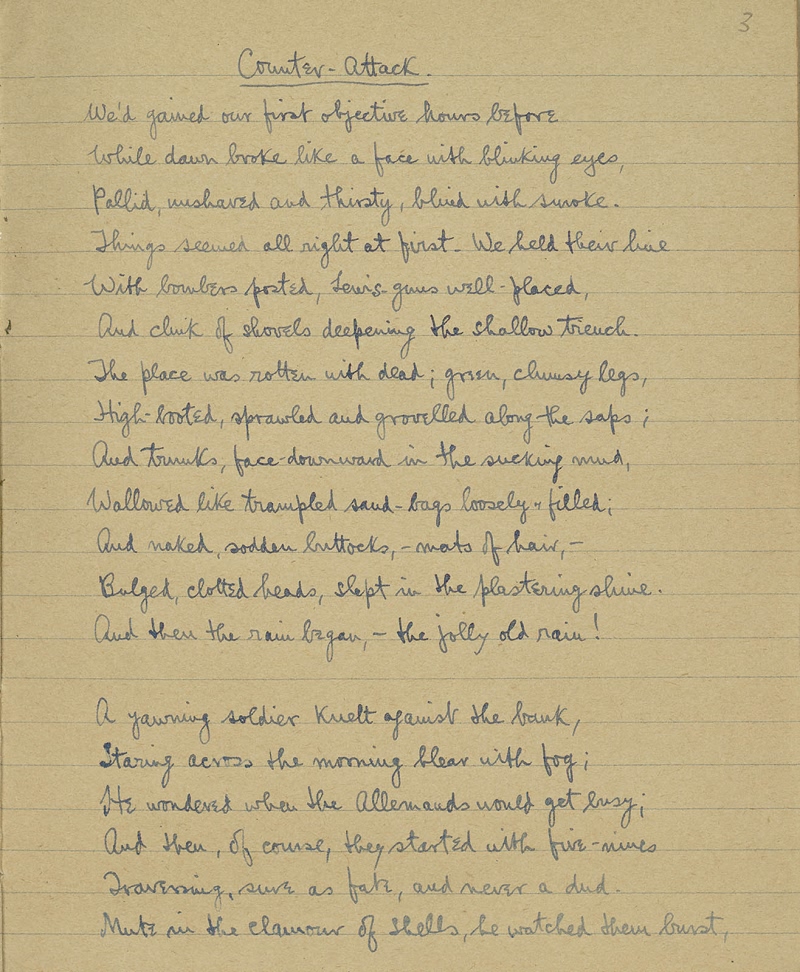 3
Counter-Attack.
We'd gained our first objective hours before
While dawn broke like a face with blinking eyes,
Pallid, unshaved and thirsty, blind with smoke.
Things seemed all right at first. We held their line
With bombers posted, Lewis-guns well-placed,
And clink of shovels deepening the shallow trench.
The place was rotten with dead; green, clumsy legs,
High-booted, sprawled and grovelled along the saps;
And trunks, face-downward in the sucking mud,
Wallowed like trampled sand-bags loosely-filled;
And naked, sodden buttocks, - mats of hair, -
Bulged, clotted heads, slept in the plastering shine.
And then the rain began, - the jolly old rain!
A yawning soldier knelt against the bank,
Staring across the morning blear with fog;
He wondered when the Allemands would get busy;
And then, of course, they started with five-nines
Traversing, sure as fate, and never a dud.
Mute in the clamour of shells, he watched them burst,